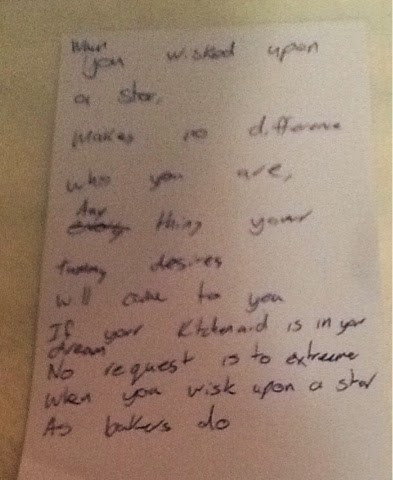 When
you wisked upon
a star,
makes no difference
who you are,
Any
every thing your
tummy desires
will come to you
If your Kitchenaid is in your
dream
No request is to extreme
When you wisk upon a star
As bakers do